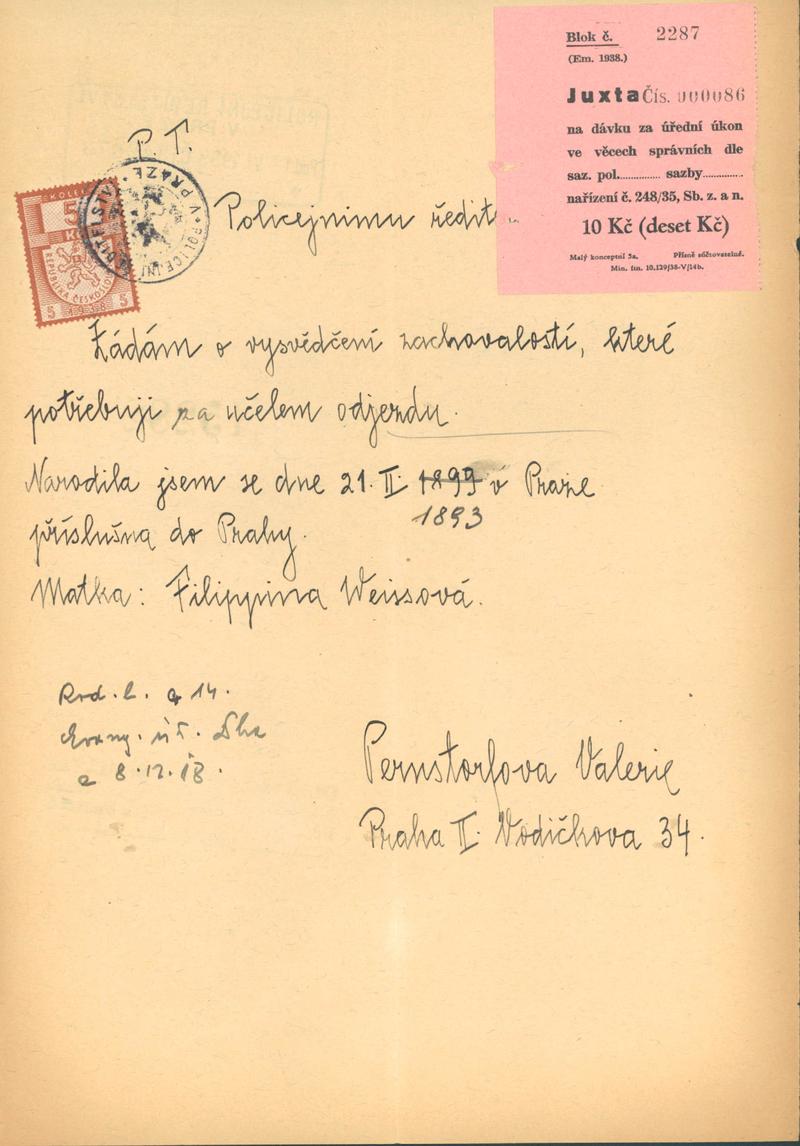 Blok č. 2287
(Em. 1938.)
Juxta Čís. 000086
na dávku za úřední úkon
ve věcech správních dle
saz. pol............... sazby...............
nařízení č. 248/35, Sb. z. a n.
10 Kč (deset Kč)
Malý konceptní 5a. Přísně súčtovatelné.
Min. fin. 10.129/38-V/14b.
P. T.
KOLEK
5
REPUBLIKA ČESKOSLO
5 1938 5
V PRAZE
Policejnimu ředit
Žádám o vysvědčení zachovalostí, které
potřebuji za učelem odjezdu.
Narodila jsem se dne 21. II. 1899 v Praze
1893
příslušná do Prahy.
Matka: Filippina Weissová.
8.12.18.
Pernstorfova Valerie
Praha II. Vodičkova 34.